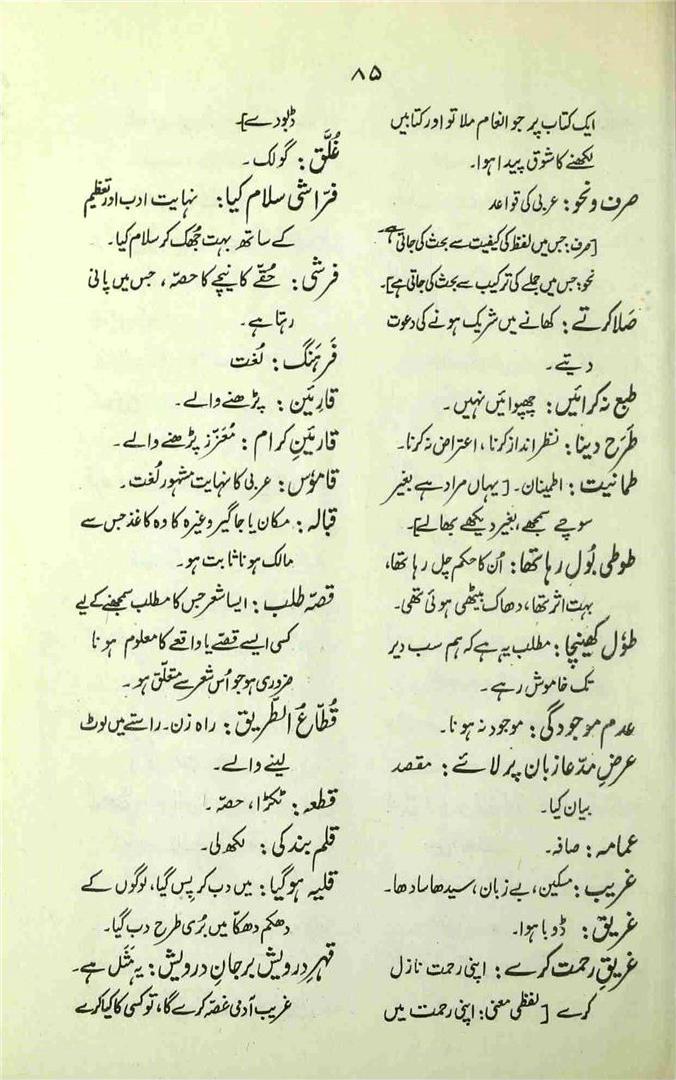 ۸۵
ایک کتاب پر جو انعام ملا تو اور کتابیں
لکھنے کا شوق پیدا ہوا۔
صرف و نحو: عربی کی قواعد
[صرف: جس میں لفظ کی کیفیت سے بحث کی جاتی ہے۔
نحو: جس میں جملے کی ترکیب سے بحث کی جاتی ہے]۔
صَلا کرتے: کھانے میں شریک ہونے کی دعوت
دیتے۔
طبع نہ کرائیں: چھپوائیں نہیں۔
طَرَح دینا: نظر انداز کرنا، اعتراض نہ کرنا۔
طمانیت: اطمینان۔ [یہاں مراد ہے بغیر
سوچے سمجھے، بغیر دیکھے بھالے]۔
طوطی بُول رہا تھا: اُن کا حکم چل رہا تھا،
بہت اثر تھا، دھاک بیٹھی ہوئی تھی۔
طوٗل کھینچا: مطلب یہ ہے کہ ہم سب دیر
تک خاموش رہے۔
عدم موجودگی: موجود نہ ہونا۔
عرضِ مدّعا زبان پر لائے: مقصد
بیان کیا۔
عمامہ: صافہ۔
غریب: مسکین، بے زبان، سیدھا سادھا۔
غریق: ڈوبا ہوا۔
غریقِ رحمت کرے: اپنی رحمت نازل
کرے [لفظی معنی: اپنی رحمت میں
ڈبودے]۔
غُلَّق: گولک۔
فرّاشی سلام کیا: نہایت ادب اور تعظیم
کے ساتھ بہت جُھک کر سلام کیا۔
فرشی: حُقّے کا نیچے کا حصّہ، جس میں پانی
رہتا ہے۔
فَرہَنگ: لُغت
قارئین: پڑھنے والے۔
قارئینِ کرام: مُعَزّز پڑھنے والے۔
قاموٗس: عربی کا نہایت مشہور لُغت۔
قبالہ: مکان یا جاگیر وغیرہ کا وہ کاغذ جس سے
مالک ہونا ثابت ہو۔
قصّہ طلب: ایسا شعر جس کا مطلب سمجھنے کے لیے
کسی ایسے قصّے یا واقعے کا معلوم ہونا
ضروری ہو جو اُس شعر سے متعلّق ہو۔
قُطّاعُ الطَّریق: راہ زن۔ راستے میں لوٹ
لینے والے۔
قطعہ: ٹکڑا، حصّہ۔
قلم بند کی: لکھ لی۔
قلیہ ہوگیا: میں دب کر پِس گیا، لوگوں کے
دھکم دھکّا میں بُری طرح دب گیا۔
قہرِ درویش بر جانِ درویش: یہ مَثَل ہے۔
غریب آدمی غصّہ کرے گا، تو کسی کا کیا کرے